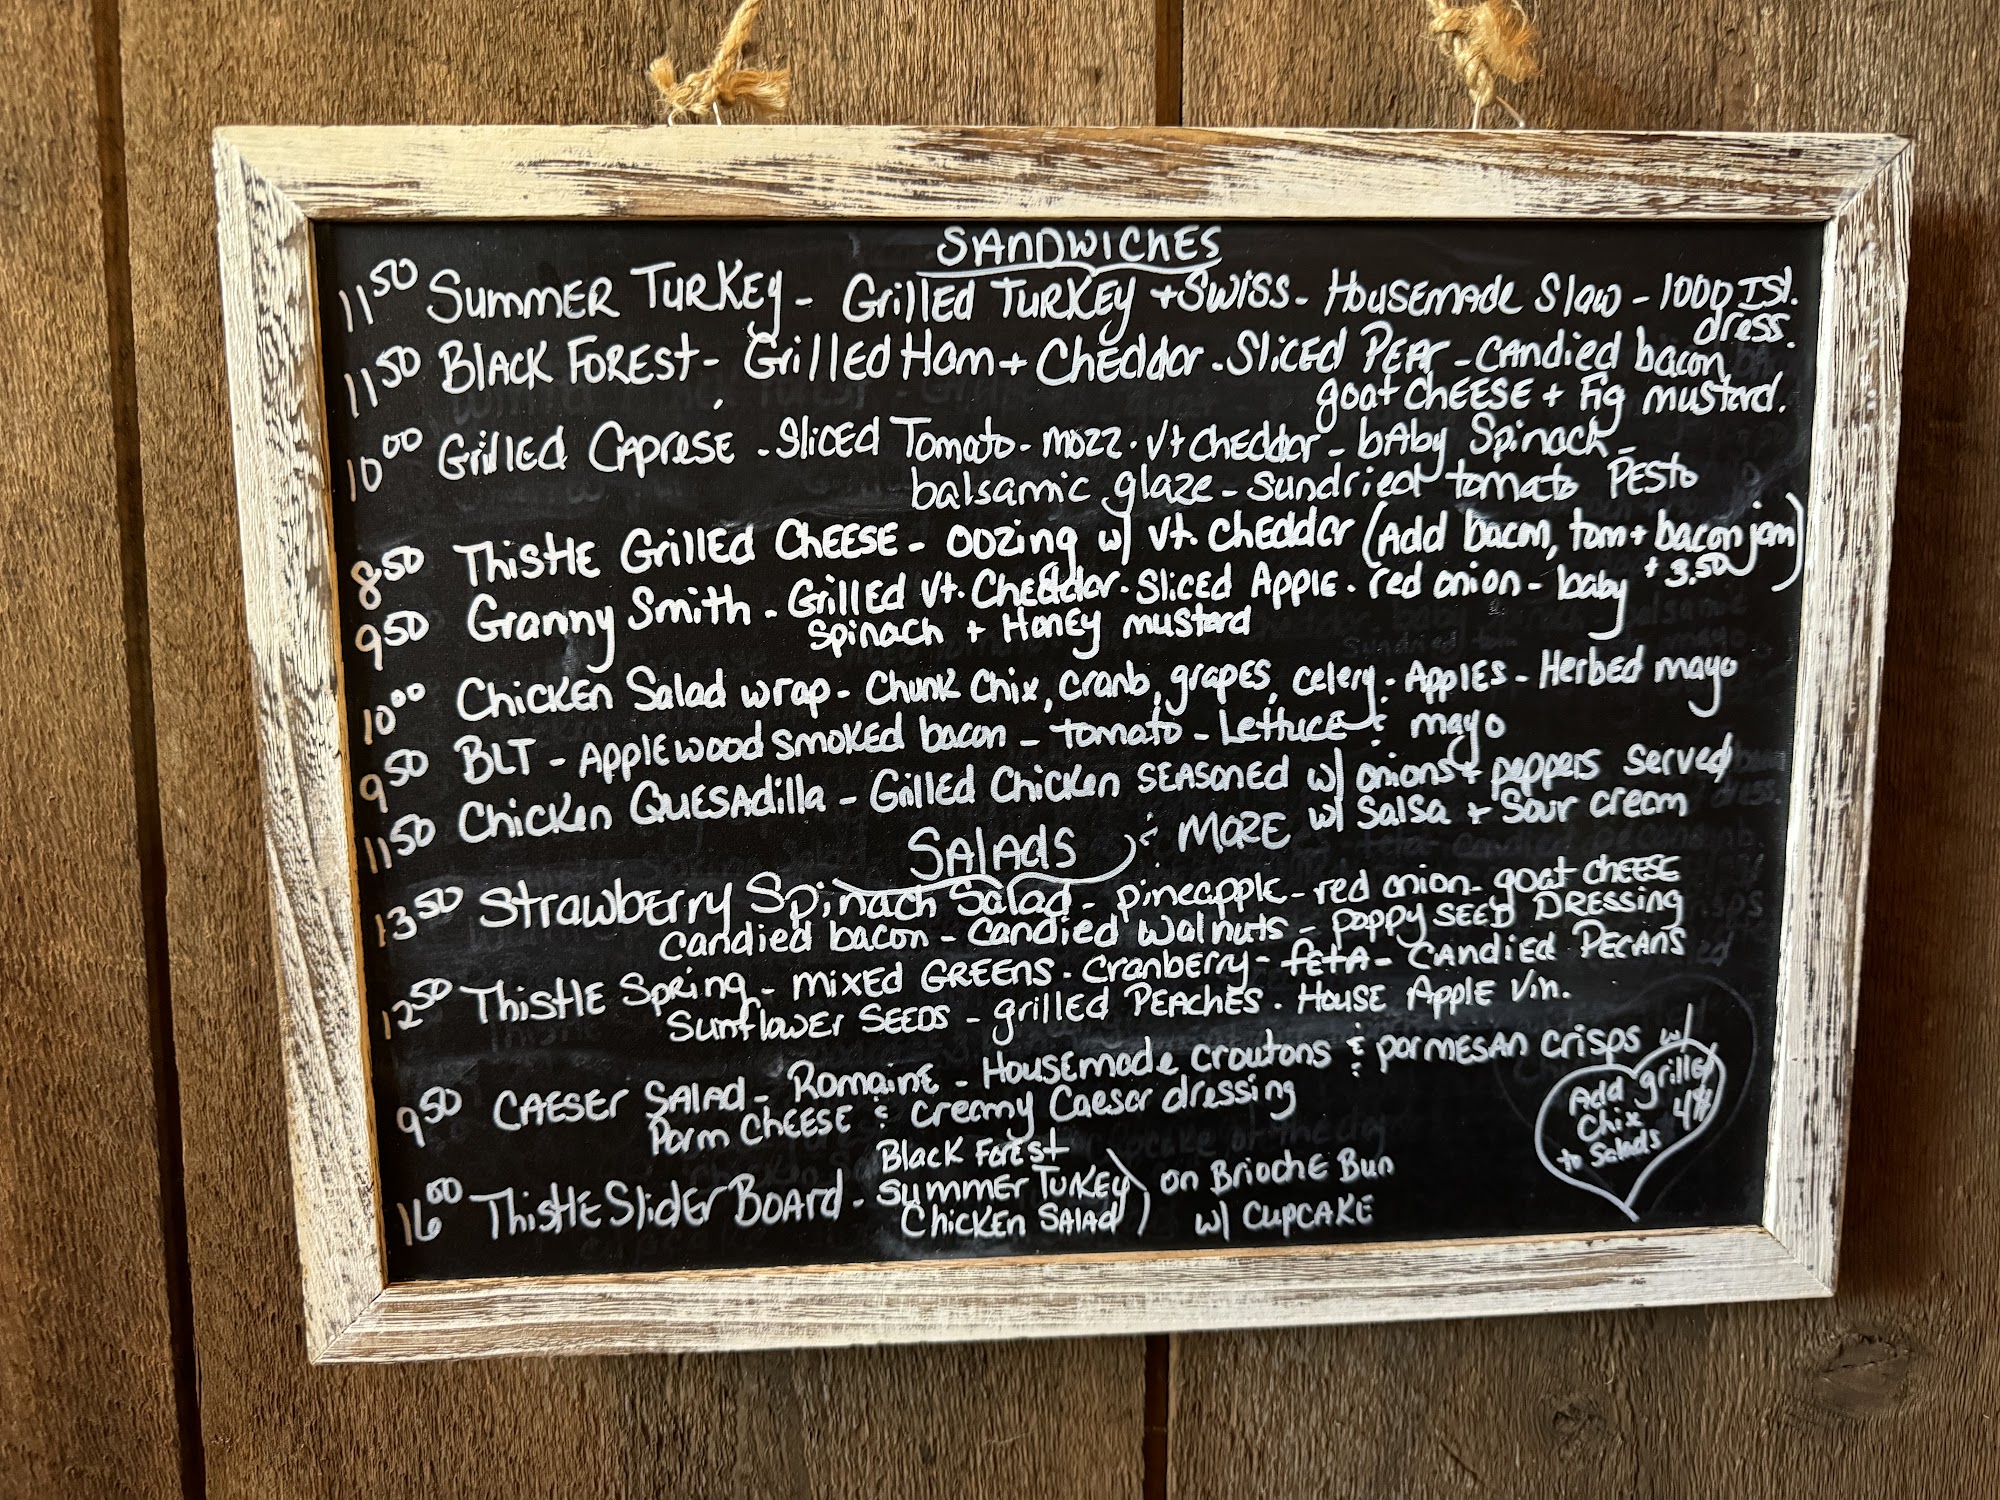 SANDWICHES
11.50 Summer Turkey - Grilled Turkey + Swiss - Housemade Slaw - 1000 Isl.
dress.
11.50 Black Forest - Grilled Ham + Cheddar - Sliced Pear - Candied bacon
goat cheese + Fig mustard.
10.00 Grilled Caprese - Sliced Tomato - mozz - Vt Cheddar - baby Spinach -
balsamic glaze - sundried tomato Pesto
8.50 Thistle Grilled Cheese - oozing w/ Vt. Cheddar (Add bacon, tom + bacon jam)
+3.50
9.50 Granny Smith - Grilled Vt. Cheddar - Sliced Apple - red onion - baby
spinach + Honey mustard
10.00 Chicken Salad wrap - Chunk Chix, cranb, grapes, celery - Apples - Herbed mayo
9.50 BLT - Applewood smoked bacon - tomato - Lettuce & mayo
11.50 Chicken Quesadilla - Grilled Chicken seasoned w/ onions + peppers served
w/ Salsa + Sour cream
SALADS & MORE
13.50 Strawberry Spinach Salad - pineapple - red onion - goat cheese
candied bacon - candied walnuts - poppy seed Dressing
12.50 Thistle Spring - mixed Greens - Cranberry - feta - Candied Pecans
Sunflower seeds - grilled Peaches - House Apple Vin.
9.50 Caeser Salad - Romaine - Housemade croutons & parmesan crisps w/
Parm Cheese & Creamy Caesar dressing
16.00 Thistle Slider Board - Black Forest
Summer Turkey
Chicken Salad
on Brioche Bun
w/ Cupcake
Add grilled
Chix 4
to Salads